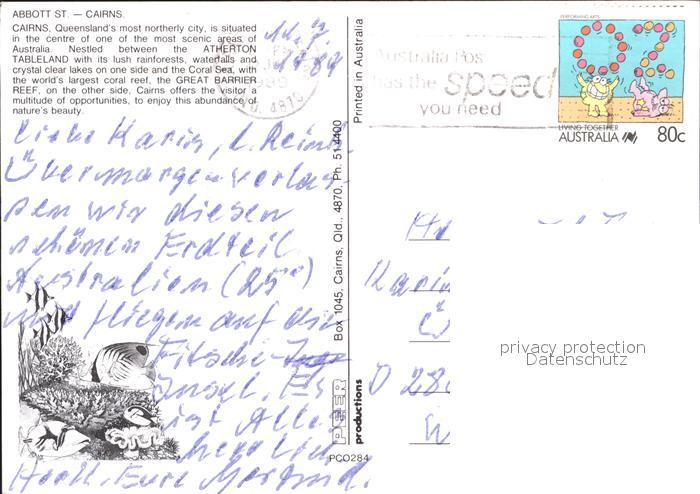 ABBOTT ST. — CAIRNS.
CAIRNS, Queensland's most northerly city, is situated
in the centre of one of the most scenic areas of
Australia. Nestled between the ATHERTON
TABLELAND with its lush rainforests, waterfalls and
crystal clear lakes on one side and the Coral Sea, with
the world's largest coral reef, the GREAT BARRIER
REEF, on the other side, Cairns offers the visitor a
multitude of opportunities, to enjoy this abundance of
nature's beauty.
4870
Liebe Karin, l. Reinh
Übermorgen verlas-
sen wir diesen
schönen Erdteil
Australien (25°)
und fliegen auf die
Fitschi-
Insel. Es
ist Alles
herrlich
Eure
Printed in Australia
Box 1045, Cairns, Qld., 4870, Ph. 51 4400
PEER
productions
PCO284
Australia Pos
has the speed
you need
PERFORMING ARTS
LIVING TOGETHER
AUSTRALIA 80c
Karin
D 28
W
privacy protection
Datenschutz